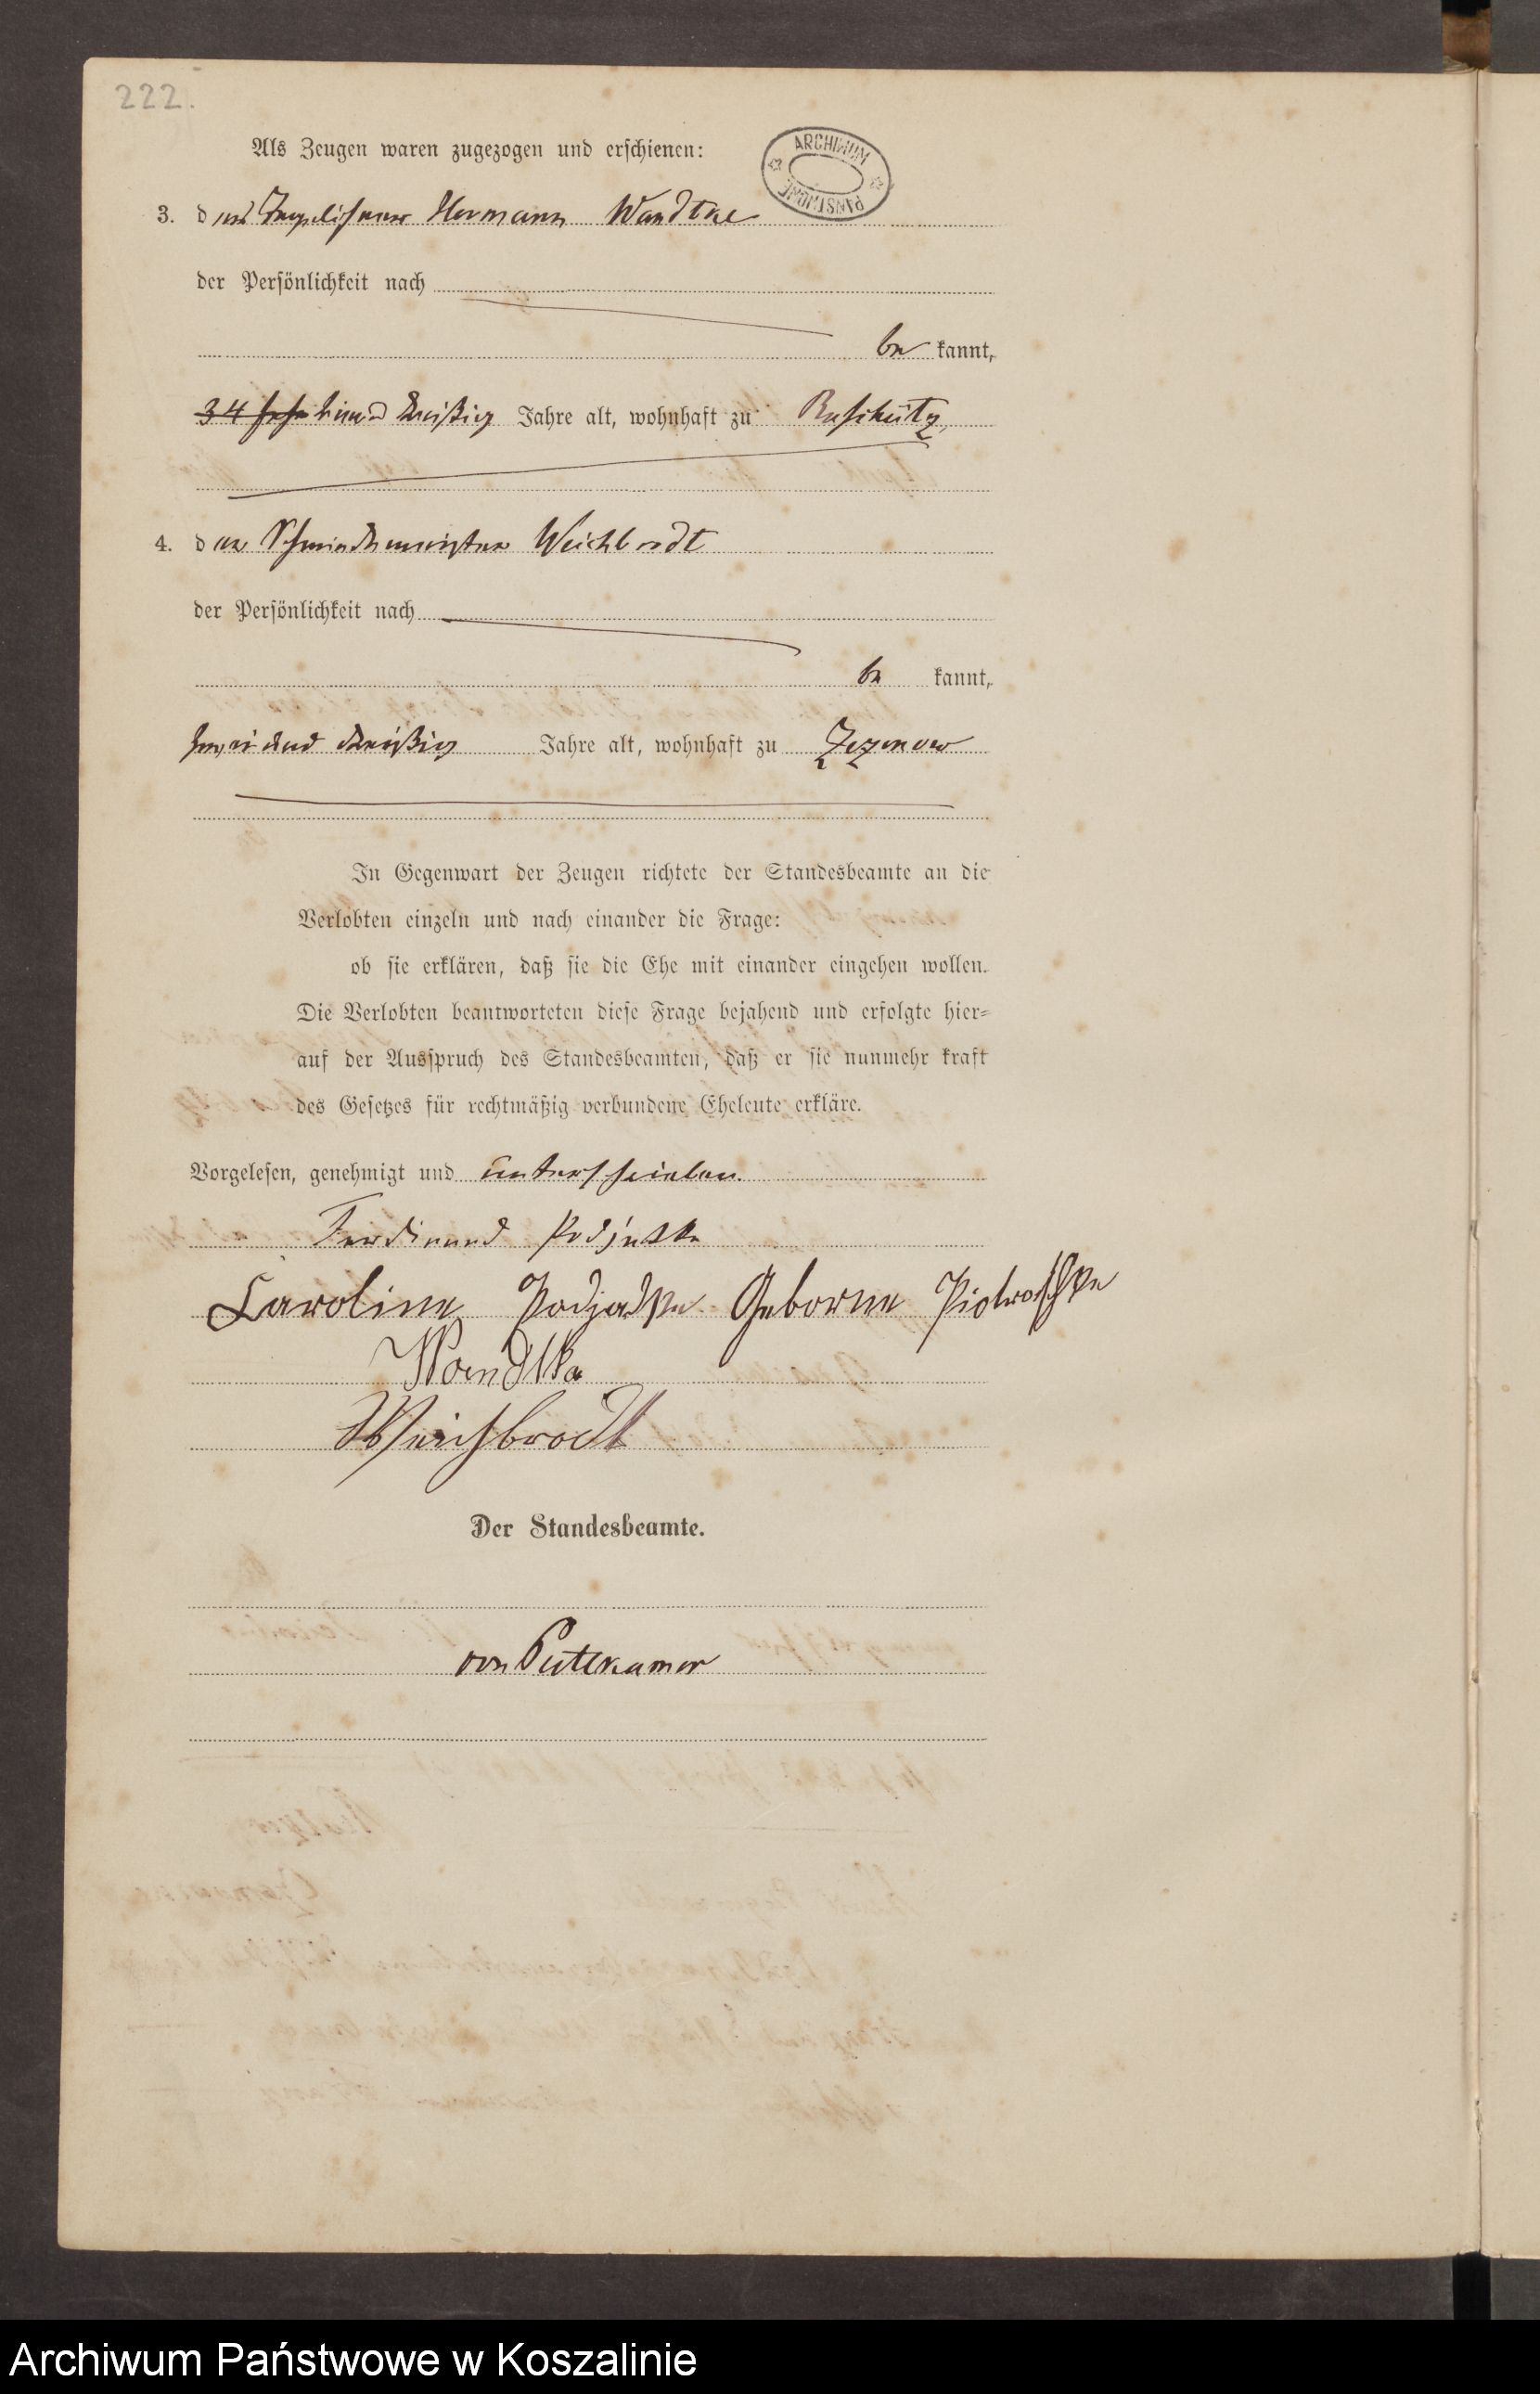 222.
Als Zeugen waren zugezogen und erschienen:
ARCHIWUM PAŃSTWOWE
3. der Hermann Wandtke
der Persönlichkeit nach
be kannt,
34 und dreißig Jahre alt, wohnhaft zu Ruschütz,
4. der Schmiedemeister Weichbrodt
der Persönlichkeit nach
be kannt,
zwei und dreißig Jahre alt, wohnhaft zu Zezenow
In Gegenwart der Zeugen richtete der Standesbeamte an die
Verlobten einzeln und nach einander die Frage:
ob sie erklären, daß sie die Ehe mit einander eingehen wollen.
Die Verlobten beantworteten diese Frage bejahend und erfolgte hier=
auf der Ausspruch des Standesbeamten, daß er sie nunmehr kraft
des Gesetzes für rechtmäßig verbundene Eheleute erkläre.
Vorgelesen, genehmigt und unterschrieben
Ferdinand Podjaske
Caroline Podjaske Geborne Piotraschke
Wandtke
Weichbrodt
Der Standesbeamte.
von Puttkamer
Archiwum Państwowe w Koszalinie